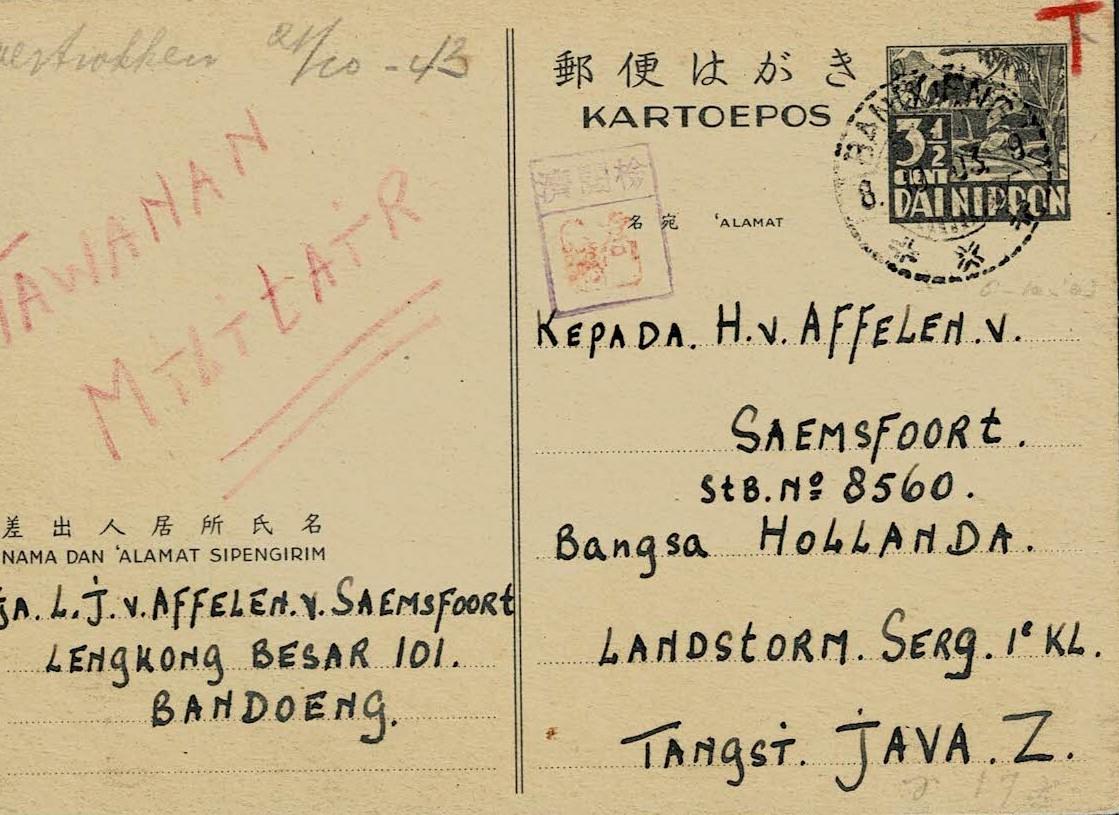 21/10-43
TAWANAN
MILITAIR
差出人居所氏名
NAMA DAN 'ALAMAT SIPENGIRIM
L.J.v.AFFELEN.v.SAEMSFOORt
LENgKONg BESAR 101.
BANDOENg.
T
郵便はがき
KARTOEPOS
3½
CENT
DAI NIPPON
BANDOENG
8. 03. 9
濟閲檢
名宛 'ALAMAT
KEPADA. H.v. AFFELEN.v.
SAEMSFOORt.
StB.Nº 8560.
Bangsa HOLLANDA.
LANDStORM. SERg. 1e KL.
TANgSi. JAVA. Z.